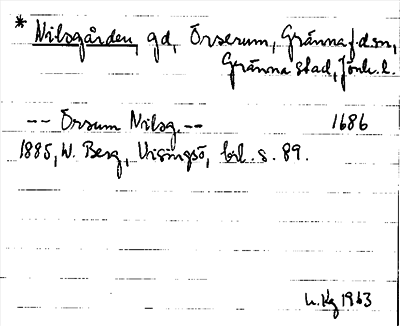 * Nilsgården, gd, Örserum, Gränna f.d. sn,
Gränna stad, Jönk. l.
-- Örsum Nilsg. -- 1686
1885, W. Berg, Visingsö, brl. s. 89.
h. Kg 1963